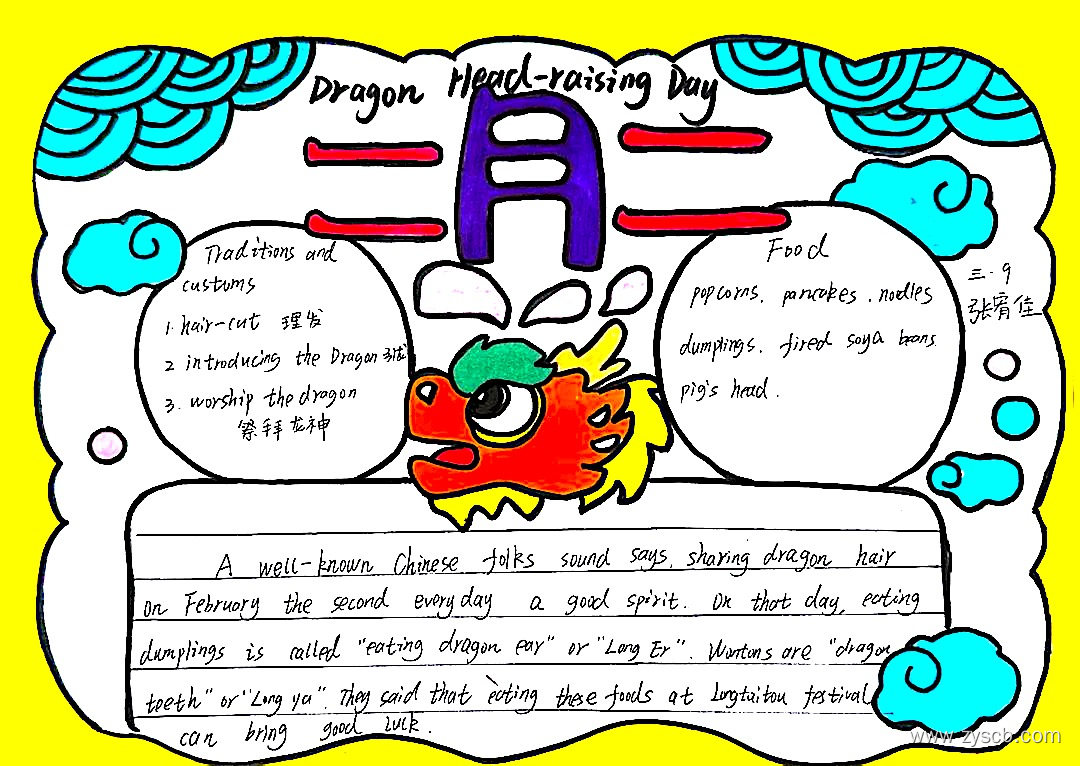 Dragon Head-raising Day
二月二
Traditions and
customs
1. hair-cut 理发
2 introducing the Dragon 引龙
3. worship the dragon
祭拜龙神
Food
popcorns. pancakes. noodles
dumplings. fired soya beans
pig's head.
三.9
张宥佳
A well-known Chinese folks sound says, sharing dragon hair
on February the second everyday a good spirit. On that day, eating
dumplings is called "eating dragon ear" or "Long Er". Wontons are "dragon
teeth" or "Long ya". They said that eating these foods at Longtaitou festival
can bring good luck.
www.zyscb.com